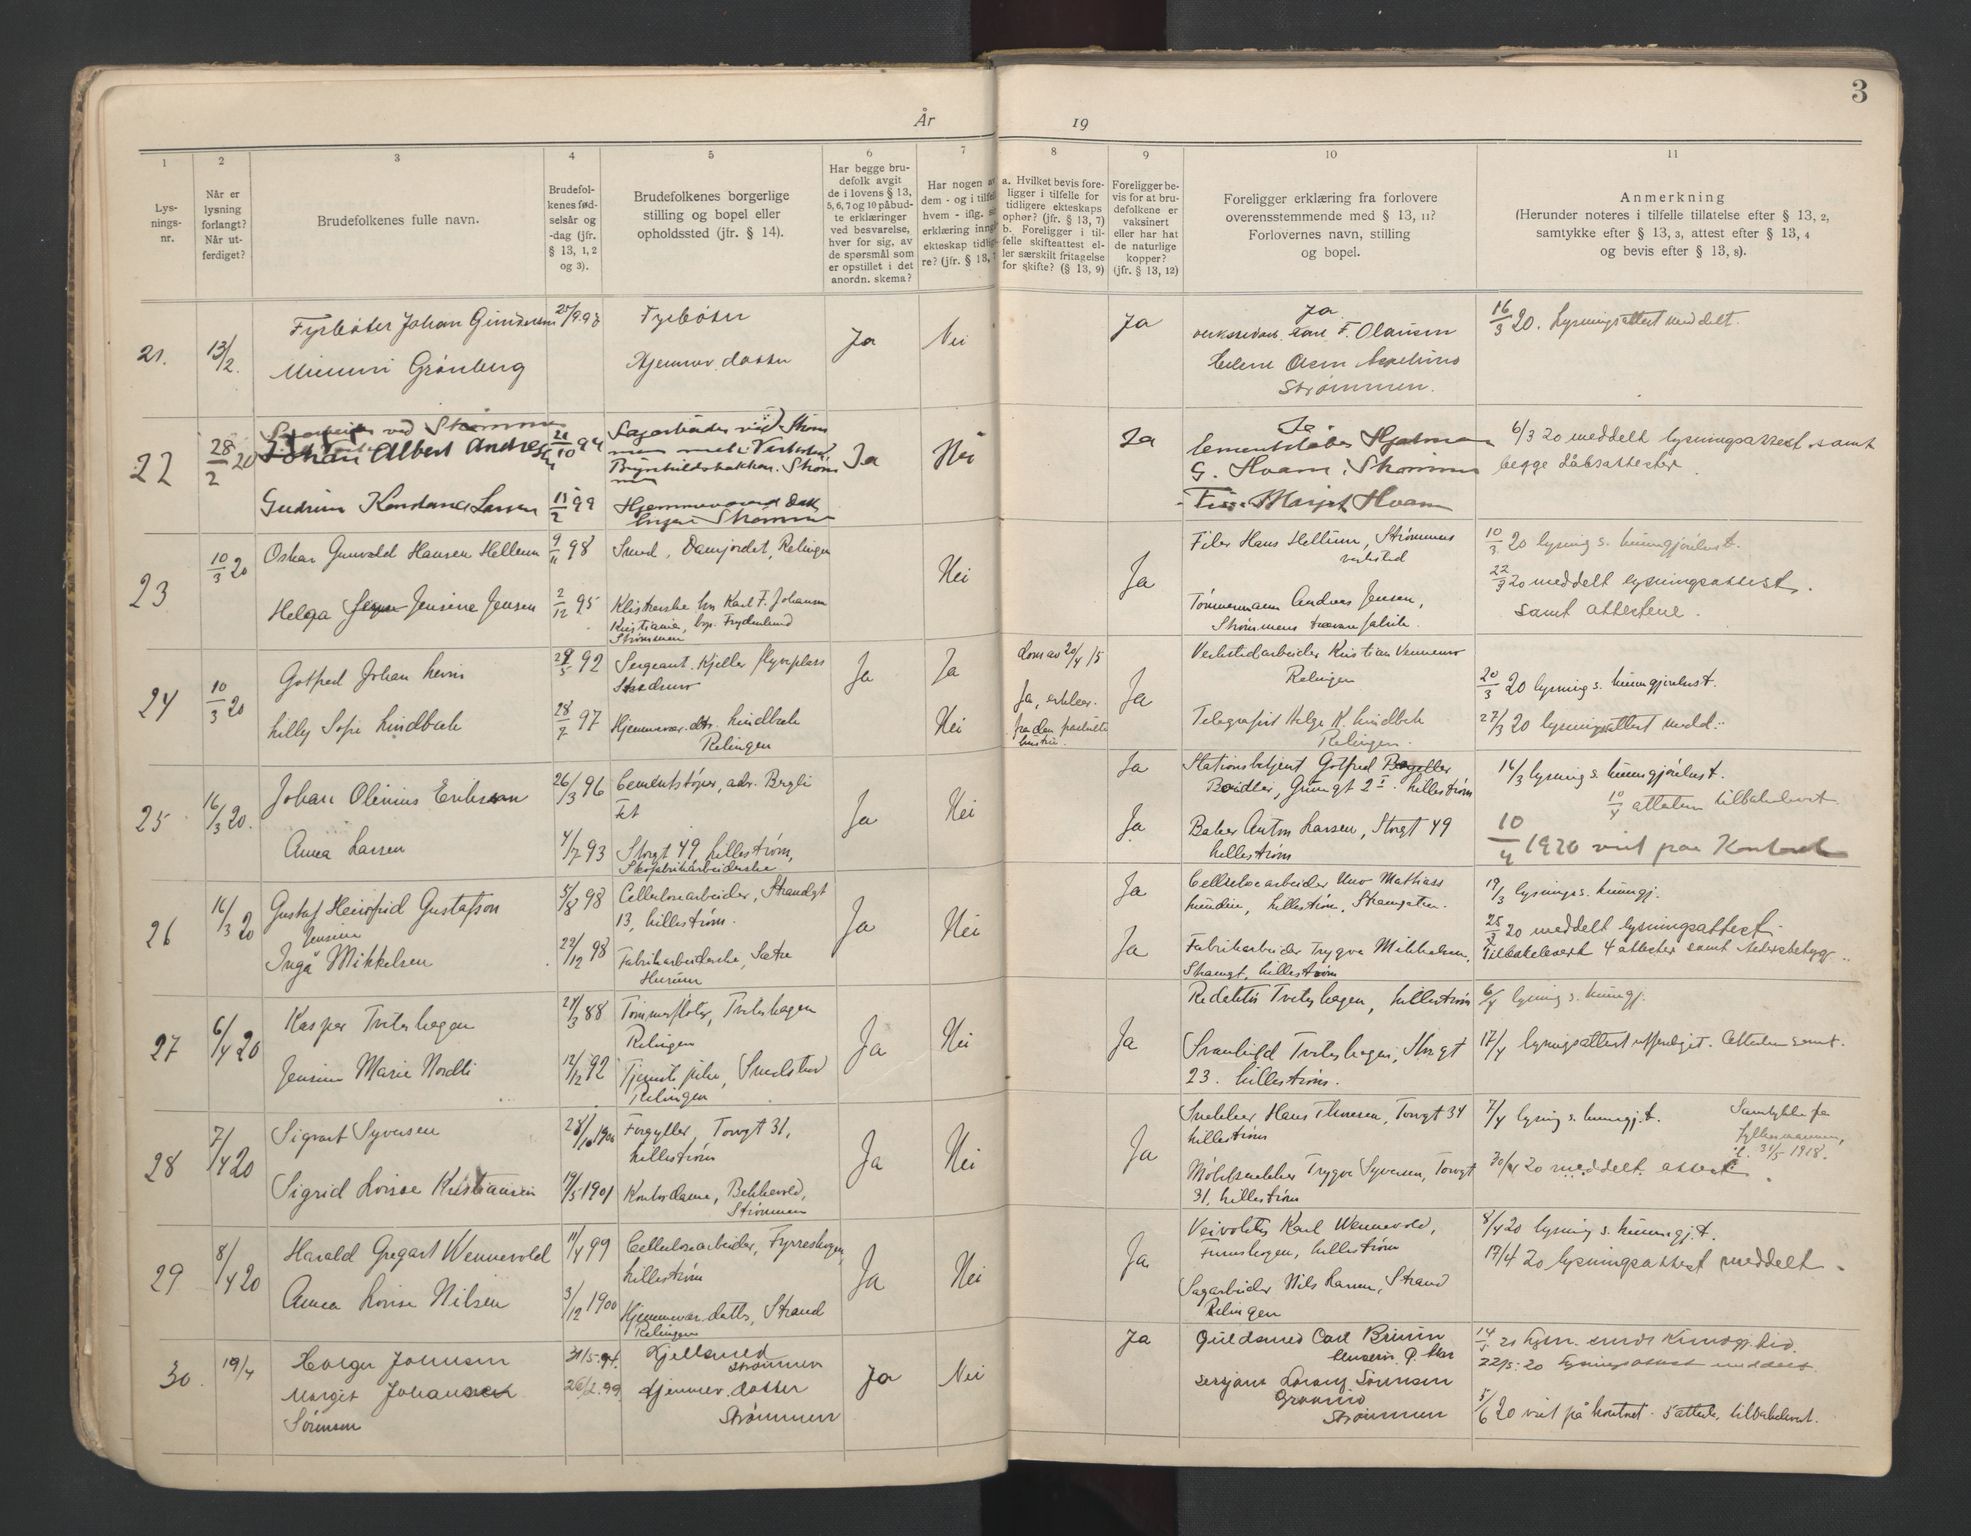 3
År 19
1
Lys-
nings-
nr.
2
Når er
lysning
forlangt?
Når ut-
ferdiget?
3
Brudefolkenes fulle navn.
4
Brudefol-
kenes fød-
selsår og
-dag (jfr.
§ 13, 1, 2
og 3).
5
Brudefolkenes borgerlige
stilling og bopel eller
opholdssted (jfr. § 14).
6
Har begge bru-
defolk avgit
de i lovens § 13,
5, 6, 7 og 10 påbud-
te erklæringer
ved besvarelse,
hver for sig, av
de spørsmål som
er opstillet i det
anordn. skema?
7
Har nogen av
dem - og i tilfel
hvem - iflg. si
erklæring inng
ekteskap tidlig
re? (jfr. § 13, 7
8
a. Hvilket bevis fore-
ligger i tilfelle for
tidligere ekteskaps
opher? (jfr. § 13, 7)
b. Foreligger i til-
felle skifteattest el-
ler særskilt fritagelse
for skifte? (§ 13, 9)
9
Foreligger be-
vis for at bru-
defolkene er
vaksinert
eller har hat
de naturlige
kopper?
(jfr. § 13, 12)
10
Foreligger erklæring fra forlovere
overensstemmende med § 13, 11?
Forlovernes navn, stilling
og bopel.
11
Anmerkning
(Herunder noteres i tilfelle tillatelse efter § 13, 2,
samtykke efter § 13, 3, attest efter § 13, 4
og bevis efter § 13, 8).
21. 13/2. Fyrbøter Johan Gundersen Fyrbøter Ja Nei Ja Ja 16/3 20. Lysningsattest meddelt.
Minni Grønberg Hjemmev. datter
Karl F. Olausen
Strømmen.
22 28/2 20 Johan Albert Andresen 21/10 94 Sagarbeider ved Strøm
men Ja Nei Ja Ja
Cementstøber Hjalmar
G. Hvam, Strømmen
6/3 20 meddelt lysningsattest samt
begge dåbsattester
Gudrun Konstance Larsen 11/2 99 Hjemmeværende datt.
Strømmen
Margit Hvam
23 10/3 20 Oskar Gunvald Hansen Hellum 9/11 98 Smed, Damjordet, Relingen Nei Ja Filer Hans Hellum, Strømmens
verksted
10/3 20 lysning s. kunngjørelset.
Helga Jensine Jensen 2/12 95 Klisterske hos Karl F. Johansen
Kristiania, bop. Frydenlund
Strømmen
Tømmermann Andreas Jensen,
Strømmens trævarefabrik.
22/3 20 meddelt lysningsattest.
samt attestene.
24 10/3 20 Gotfred Johan Levin 29/5 92 Sergeant. Kjeller flyveplass Ja Ja dom av 20/4 15 Ja Verkstedarbeider Kristian Vennevo
Relingen
20/3 20 lysning s. kunngjørelset.
Lilly Sofie Lindbæk 28/7 97 Hjemmevær. dtr. Lindbæk
Relingen
Nei Ja, erklær.
fra den fraskilte
hustru.
Telegrafist Helge K. Lindbæk
Relingen.
27/3 20 lysningsattest medd.
25 16/3 20. Johan Olinius Eriksen 26/3 96 Cementstøper, adr. Bergli
Fet Ja Nei Ja Stationsbetjent Gotfred
16/3 lysning s. kunngjørelset.
10/4 attesten tilbakelevert
Anna Larsen 4/7 93 Storgt 49 Lillestrøm,
Skofabrikarbeiderske
Ja Baker Anton Larsen, Storgt 49
Lillestrøm
10/4 1920 viet paa Kontoret
26 16/3 20 Gustaf Heinfrid Gustafson 5/8 98 Cellulosearbeider, Strandgt
13, Lillestrøm. Ja Nei Ja Cellulosearbeider Uno Mathias
Lundin, Lillestrøm, Skamgaten.
19/3 lysnings. kunngj.
Jensine
Inga Mikkelsen 22/12 98 Fabrikarbeiderske, Sætre
Hurum
Ja Fabrikarbeider Trygve Mikkelsen,
Skamgt, Lillestrøm
25/3 20 meddelt lysningsattest.
Tilbakelevert 4 attester samt
27 6/4 20 Kasper Tveterhagen 21/3 88 Tømmerfløter, Tveterhagen
Relingen Ja Nei Ja Redaktør Tveterhagen, Lillestrøm 6/4 lysning s. kunngj.
Jensine Marie Nordli 12/12 92 Tjenestepike, Smedstad
Relingen
Svanhild Tveterhagen, Storgt
23. Lillestrøm.
17/4 lysningsattest utferdiget. Attesten samt.
28 7/4 20 Sigvart Syversen 28/10 1900 Forgyller, Torvgt 31,
Lillestrøm Ja Nei Ja Snekker Hans Thoresen, Torvgt 34
Lillestrøm
7/4 lysning s. kunngj.t. Samtykke fra
Fylkesmannen,
31/5 1918.
Sigrid Lovise Kristiansen 19/5 1901 Kontordame, Bekkevold,
Strømmen
Møbelsnekker Trygve Syversen, Torvgt
31, Lillestrøm
30/4 20 meddelt attest
29 8/4 20 Harald Gregart Wennevold 11/4 99 Cellulosearbeider, Fyrreshogen,
Lillestrøm Ja Nei Ja Veivokter Karl Wennevold,
Lillestrøm
8/4 20 lysning s. kunngj.t.
Anna Lovise Nilsen 3/12 1900 Hjemmevær. datter, Strand
Relingen
Sagarbeider Nils Larsen, Strand
Relingen
19/4 20 lysningsattest meddelt.
30. 19/4 Holger Johnsen 31/5.94. Kjellsmed
Strømmen Ja Nei Ja Guldsmed Carl Bruun
Margit Johansen
Sørensen 26/2.99. Hjemmev. datter
Strømmen
Sørensen
Strømmen
22/5.20 lysningsattest meddelt.
5/6 20 viet på kontoret. 5 attester tilbakelevert.